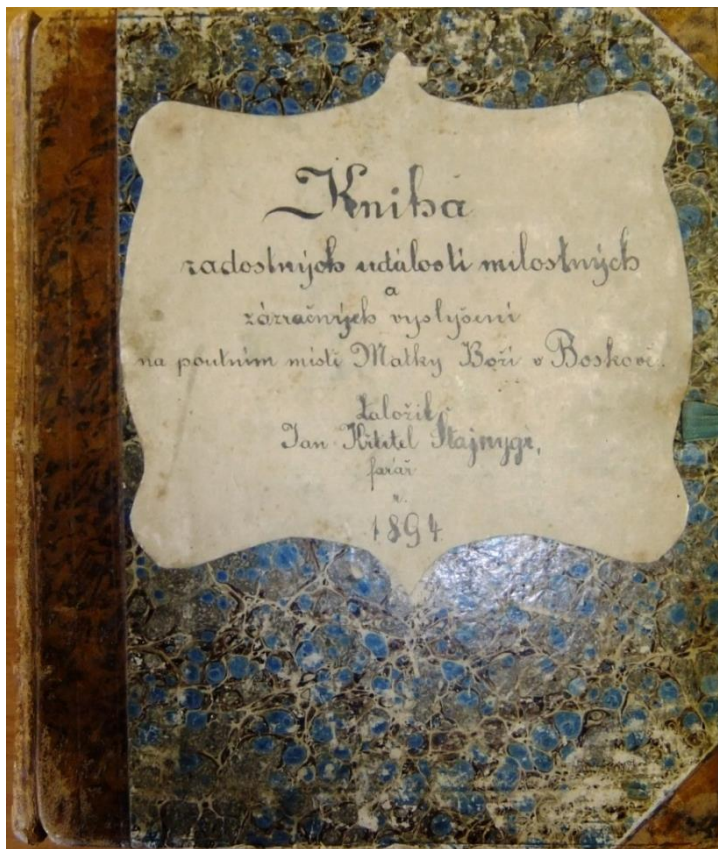 Kniha
radostných událostí milostných
a
zázračných vyslyšení
na poutním místě Matky Boží v Boskově.
Založil
Jan Křtitel Štajnygr,
farář
r.
1894